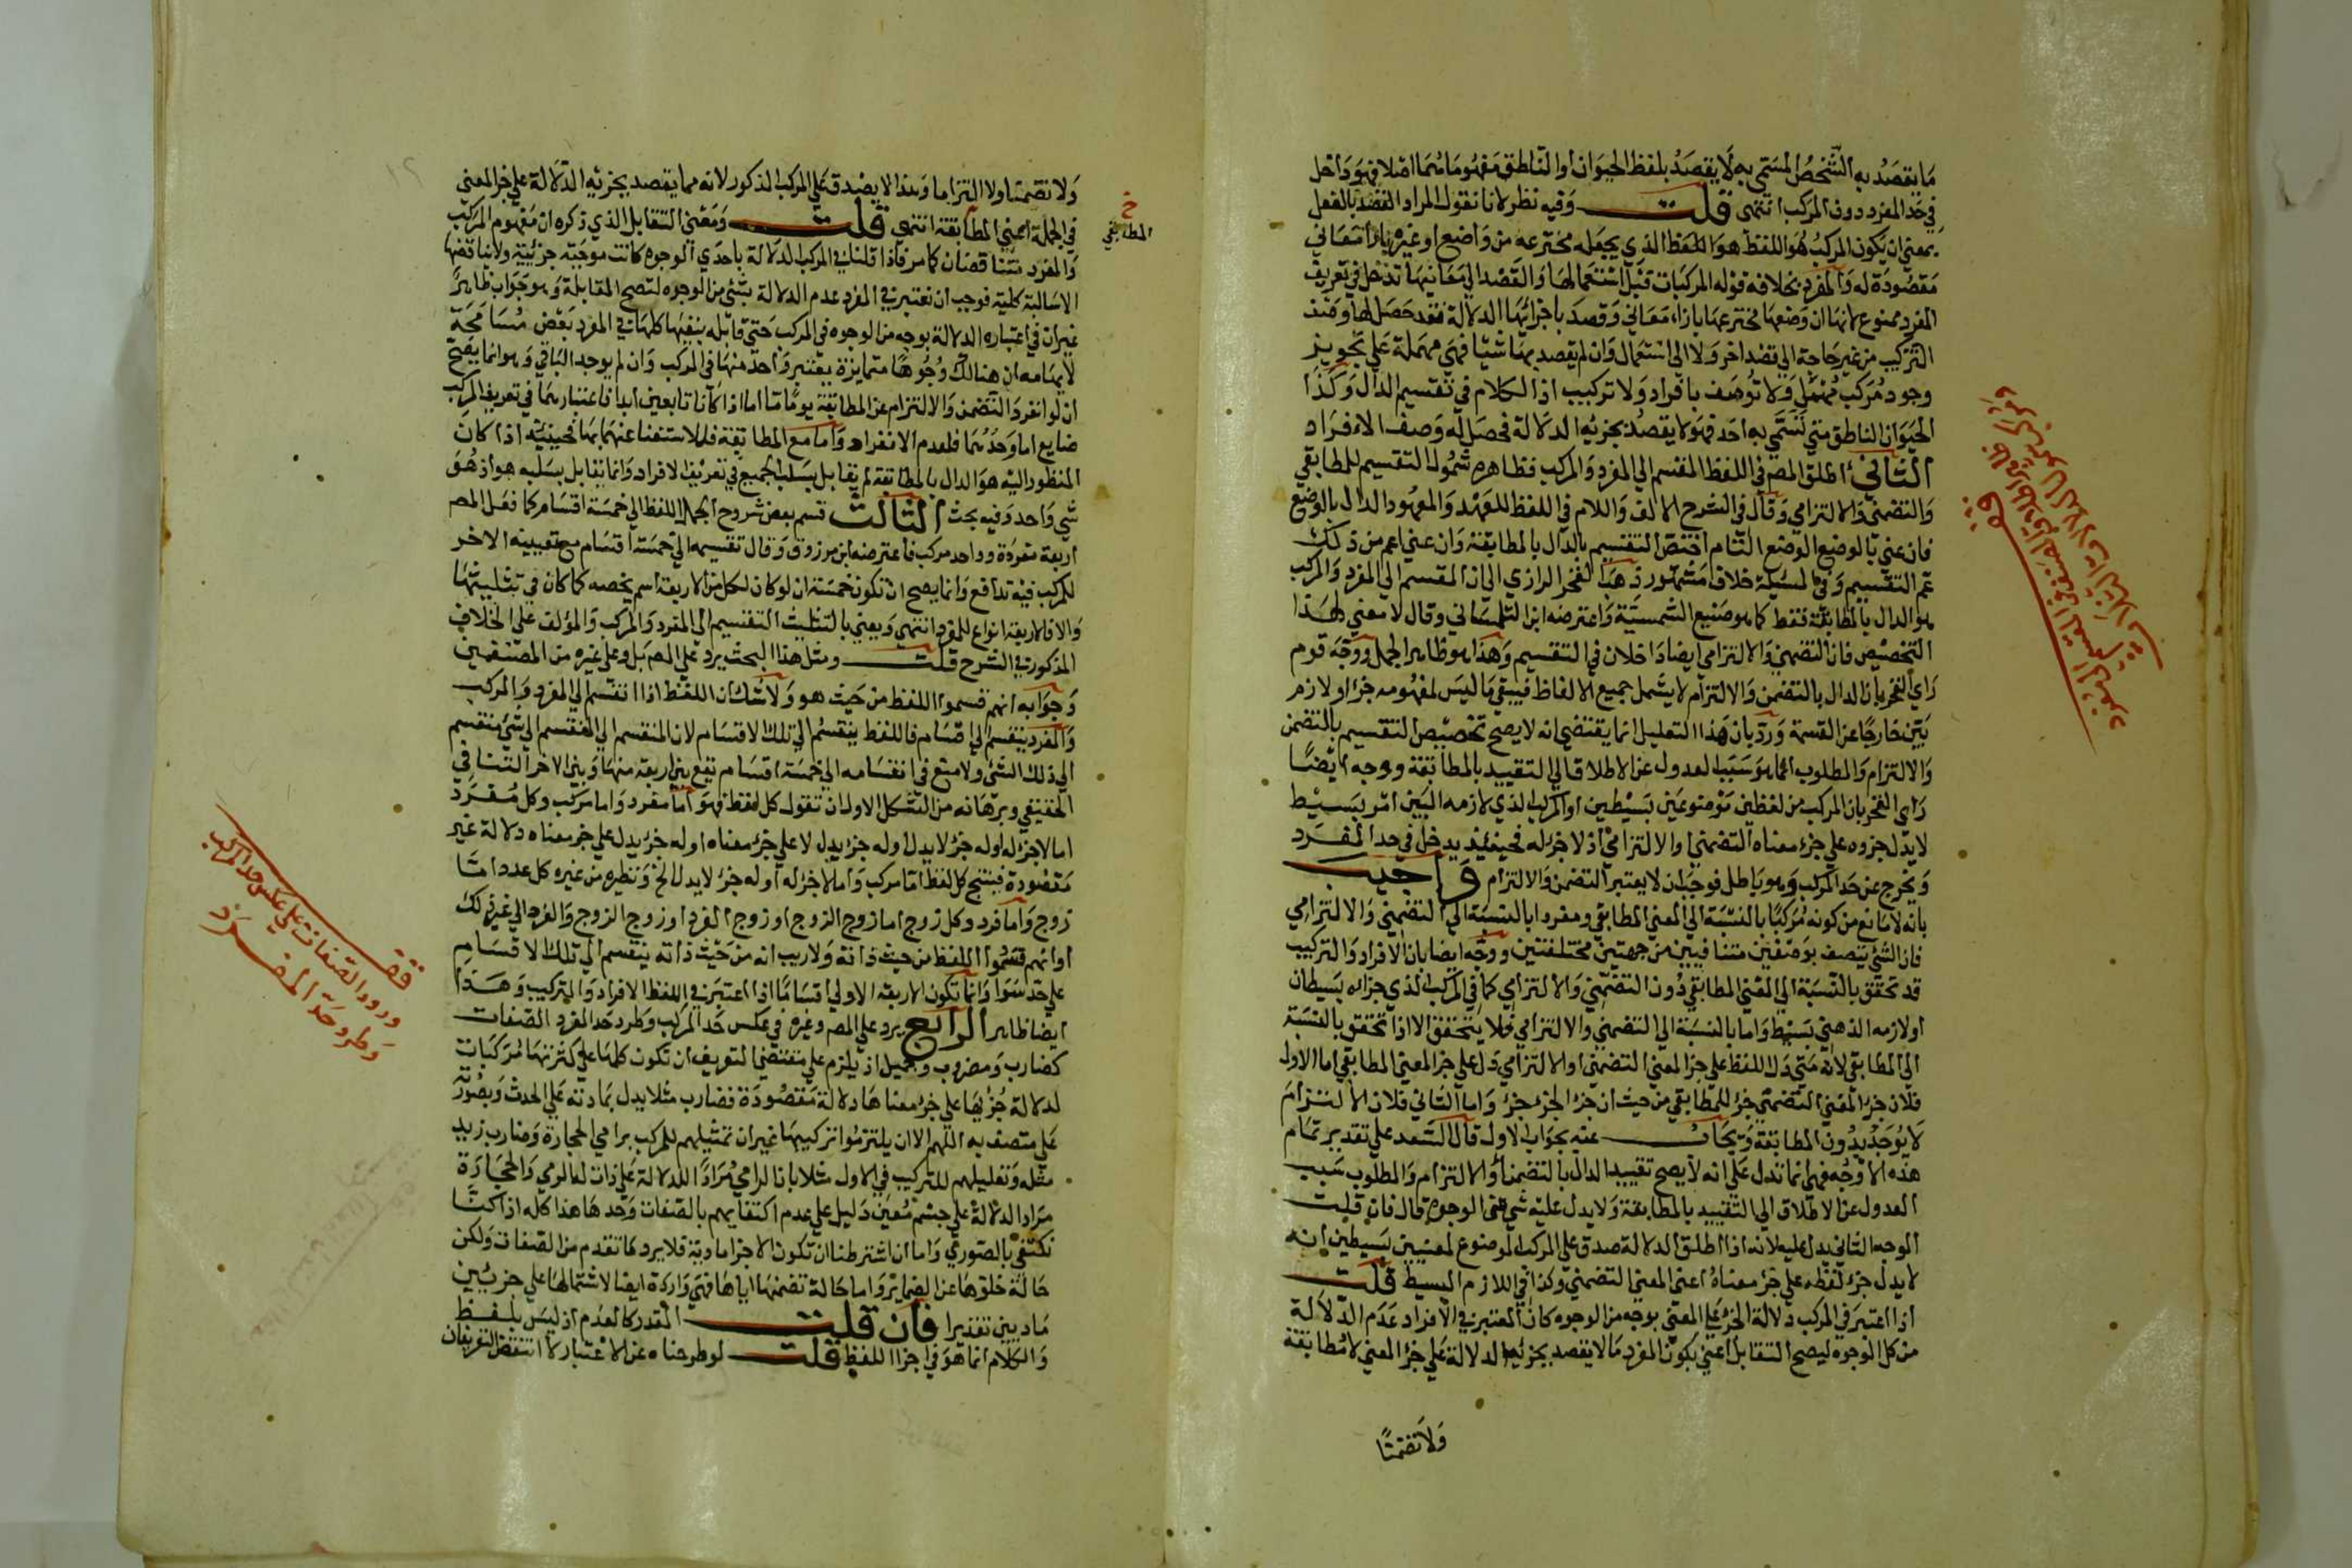 ما يقصد به الشخص المسمى به لا يقصد بلفظ الحيوان او الناطق مفهوماتهما اصلا فهو داخل
في حد المفرد دون المركب انتهى قلت وفيه نظر لانا نقول المراد القصد بالفعل
بمعنى ان يكون المركب هو اللفظ الذي يجعله مخترعه من واضع او غيره بازا معاني
مقصودة له والمفرد بخلافه قوله المركبات قبل استعمالها والقصد الى معانيها تدخل في تعريف
المفرد ممنوع لانها ان وضعها مخترعها بازاء معاني وقصد باجزائها الدلالة فقد حصل لها وصف
التركيب من غير حاجة الى قصد اخر ولا الى استعمال وان لم يقصد بها شيئا فهي مهملة على تجويز
وجود مركب مهمل ولا توصف بافراد ولا تركيب اذ الكلام في تقسيم الدال وكذا
الحيوان الناطق متى تسمى به احد فهو لا يقصد بجزئيه الدلالة فحصل له وصف الافراد
الثاني اطلق المص في اللفظ المقسم الى المفرد والمركب فظاهره شمول التقسيم للمطابقي
والتضمني والالتزامي وقال في الشرح الالف واللام في اللفظ للعهد والمعهود الدال بالوضع
فان عنى بالوضع الوضع التام اختص التقسيم بالدال بالمطابقة وان عنى اعم من ذلك
عم التقسيم وفي المسئلة خلاف مشهور ذهب الفخر الرازي الى ان المقسم الى المفرد والمركب
هو الدال بالمطابقة فقط كما هو صنيع الشمسية واعترضه ابن التلمساني وقال لا معنى لهذا
التخصيص فان التضمني والالتزامي ايضا داخلان في التقسيم وهذا هو ظاهر الجمل ووجه قوم
راي الفخر بان الدال بالتضمن والالتزام لا يشمل جميع الالفاظ فيبقى ما ليس لمفهومه جزء او لازم
بين خارجا عن القسمة ورد بان هذا التعليل انما يقتضي انه لا يصح تخصيص التقسيم بالتضمن
والالتزام والمطلوب انما هو سبب العدول عن الاطلاق الى التقييد بالمطابقة ووجه ايضا
راي الفخر بان المركب من لفظين موضوعين بسيطين او المركب الذي لازمه البين امر بسيط
لا يدل جزوه على جزء معناه التضمني او الالتزامي اذ لا جزء له فحينئذ يدخل في حد المفرد
ويخرج عن حد المركب وهو باطل فوجب ان لا يعتبر التضمن والالتزام واجيب
بانه لا مانع من كونه مركبا بالنسبة الى المعنى المطابقي ومفردا بالنسبة الى التضمني والالتزامي
فان الشئ يتصف بوصفين متنافيين من جهتين مختلفتين ووجه ايضا بان الافراد والتركيب
قد تحقق بالنسبة الى المعنى المطابقي دون التضمني والالتزامي كما في المركب الذي جزاه بسيطان
او لازمه الذهني بسيط واما بالنسبة الى التضمني والالتزامي فلا يتحقق الا اذا تحقق بالنسبة
الى المطابقي لانه متى دل اللفظ على جزء المعنى التضمني او الالتزامي دل على جزء المعنى المطابقي اما الاول
فلان جزء المعنى التضمني جزء للمطابقي من حيث ان جزء الجزء جزء واما الثاني فلان الالتزام
لا يوجد بدون المطابقة ويجاب عنه بجواب الاول قال السعد على تقدير تمام
هذه الاوجه فهي انما تدل على انه لا يصح تقييد الدال بالتضمن او الالتزام والمطلوب سبب
العدول عن الاطلاق الى التقييد بالمطابقة ولا يدل عليه شئ من الوجوه قال فان قلت
الوجه الثاني يدل عليه لانه اذا اطلق الدلالة صدق على المركب الموضوع لمعنيين بسيطين انه
لا يدل جزء لفظه على جزء معناه اعني المعنى التضمني وكذا في اللازم البسيط قلت
اذا اعتبر في المركب دلالة الجزء على المعنى بوجه من الوجوه كان المعتبر في الافراد عدم الدلالة
من كل الوجوه ليصح التقابل اعني بكون المفرد ما لا يقصد بجزئه الدلالة على جزء المعنى لا مطابقة
ولا تضمنا
ولا تضمنا ولا التزاما وهذا لا يصدق على المركب المذكور لانه مما يقصد بجزئيه الدلالة على جزء المعنى
في الجملة اعني المطابقة انتهى قلت ومعنى التقابل الذي ذكره ان مفهوم المركب
خ
المطابقي
والمفرد متناقضان كما مر فاذا قلنا في المركب الدلالة باحدي الوجوه كانت موجبة جزئية ولا يناقضها
الا سالبة كلية فوجب ان نعتبر في المفرد عدم الدلالة بشئ من الوجوه لتصح المقابلة وهو جواب ظاهر
غير ان في اعتباره الدلالة بوجه من الوجوه في المركب حتى قابله بنفيها كلها في المفرد بعض مسامحة
لايهامه ان هنالك وجوها متمايزة يعتبر واحد منها في المركب وان لم يوجد الباقي وهو انما يصح
ان لو انفرد التضمن والالتزام عن المطابقة يوما ما اما اذا كانا تابعين ابدا فاعتبارهما في تعريف المركب
ضايع اما وحدهما فلعدم الانفراد واما مع المطابقة فللاستغنا عنهما بها فحينئذ اذا كان
المنظور اليه هو الدال بالمطابقة لم يقابل بسلب الجميع في تعريف الافراد وانما يقابل بسلبه هو اذ هو
شي واحد وفيه بحث الثالث قسم بعض شروح الجمل اللفظ الى خمسة اقسام كما فعل المص
اربعة مفردة وواحد مركب فاعترضه ابن مرزوق وقال تقسيمه الى خمسة اقسام مع تعيينه الاخر
للمركب فيه تدافع وانما يصح ان تكون خمسة ان لو كان لكل من الاربعة اسم يخصه كما كان في تثليثها
والا فالاربعة انواع للمفرد انتهى ويعني بالتثليث التقسيم الى المفرد والمركب والمؤلف على الخلاف
المذكور في الشرح قلت ومثل هذا البحث يرد على المص بل وعلى غيره من المصنفين
وجوابه انهم قسموا اللفظ من حيث هو ولا شك ان اللفظ اذا انقسم الى المفرد والمركب
والمفرد ينقسم الى اقسام فاللفظ ينقسم الى تلك الاقسام لان المنقسم الى المنقسم الى شئ منقسم
الى ذلك الشئ ولا منع في انقسامه الى خمسة اقسام نعم بين اربعة منها وبين الاخر التنافي
الحقيقي وبرهانه من الشكل الاول ان تقول كل لفظ فهو اما مفرد واما مركب وكل مفرد
اما لا جزء له او له جزء لا يدل او له جزء يدل لا على جزء معناه او له جزء يدل على جزء معناه دلالة غير
مقصودة فينتج كل لفظ اما مركب واما لا جزء له او له جزء لا يدل الخ ونظيره من غيره كل عدد اما
زوج واما فرد وكل زوج اما زوج الزوج او زوج الفرد او زوج الزوج والفرد الى غير ذلك
او انهم قسموا اللفظ من حيث ذاته ولا ريب انه من حيث ذاته ينقسم الى تلك الاقسام
على حد سوا وانما تكون الاربعة الاولى اقساما اذا اعتبر في اللفظ الافراد والتركيب وهذا
ايضا ظاهر الرابع يرد على المص وغيره في عكس حد المركب وطرد حد المفرد الصفات
كضارب ومضروب وجميل اذ يلزم على مقتضى التعريف ان تكون كلها على كثرتها مركبات
لدلالة جزئها على جزء معناها دلالة مقصودة فضارب مثلا يدل بمادته على الحدث وبصورته
على متصف به اللهم الا ان يلتزموا تركيبها غير ان تمثيلهم للمركب برامي الحجارة وضارب زيد
مثله وتعليلهم للتركيب في الاول مثلا بان الرامي مرادا للدلالة على ذات لها الرمي والحجارة
مراد الدلالة على جسم معين دليل على عدم اكتفايهم بالصفات وحدها هذا كله اذا كنا
نكتفي بالصوري واما ان اشترطنا ان تكون الاجزا مادية فلا يرد ما تقدم من الصفات ولكن
حالة خلوها عن الضماير واما حالة تضمنها اياها فهي واردة ايضا لاشتمالها على جزئين
ماديين تقديرا فان قلت المقدر كالعدم اذ ليس بلفظ
والكلام انما هو في اجزا اللفظ قلت لو طرحناه عن الاعتبار لا انتقض التعريفان
قف
ورود الصفات على عكس حد المركب
وطرد حد المفرد